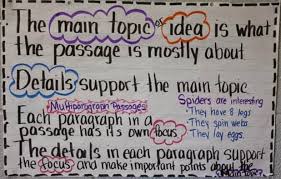 The main topic or idea is what
the passage is mostly about
Details support the main topic
Multiparagraph Passages
Each paragraph in a
passage has its own focus
Spiders are interesting
• They have 8 legs
• They spin webs
• They lay eggs.
The details in each paragraph support
the focus and make important points about the
main topic.